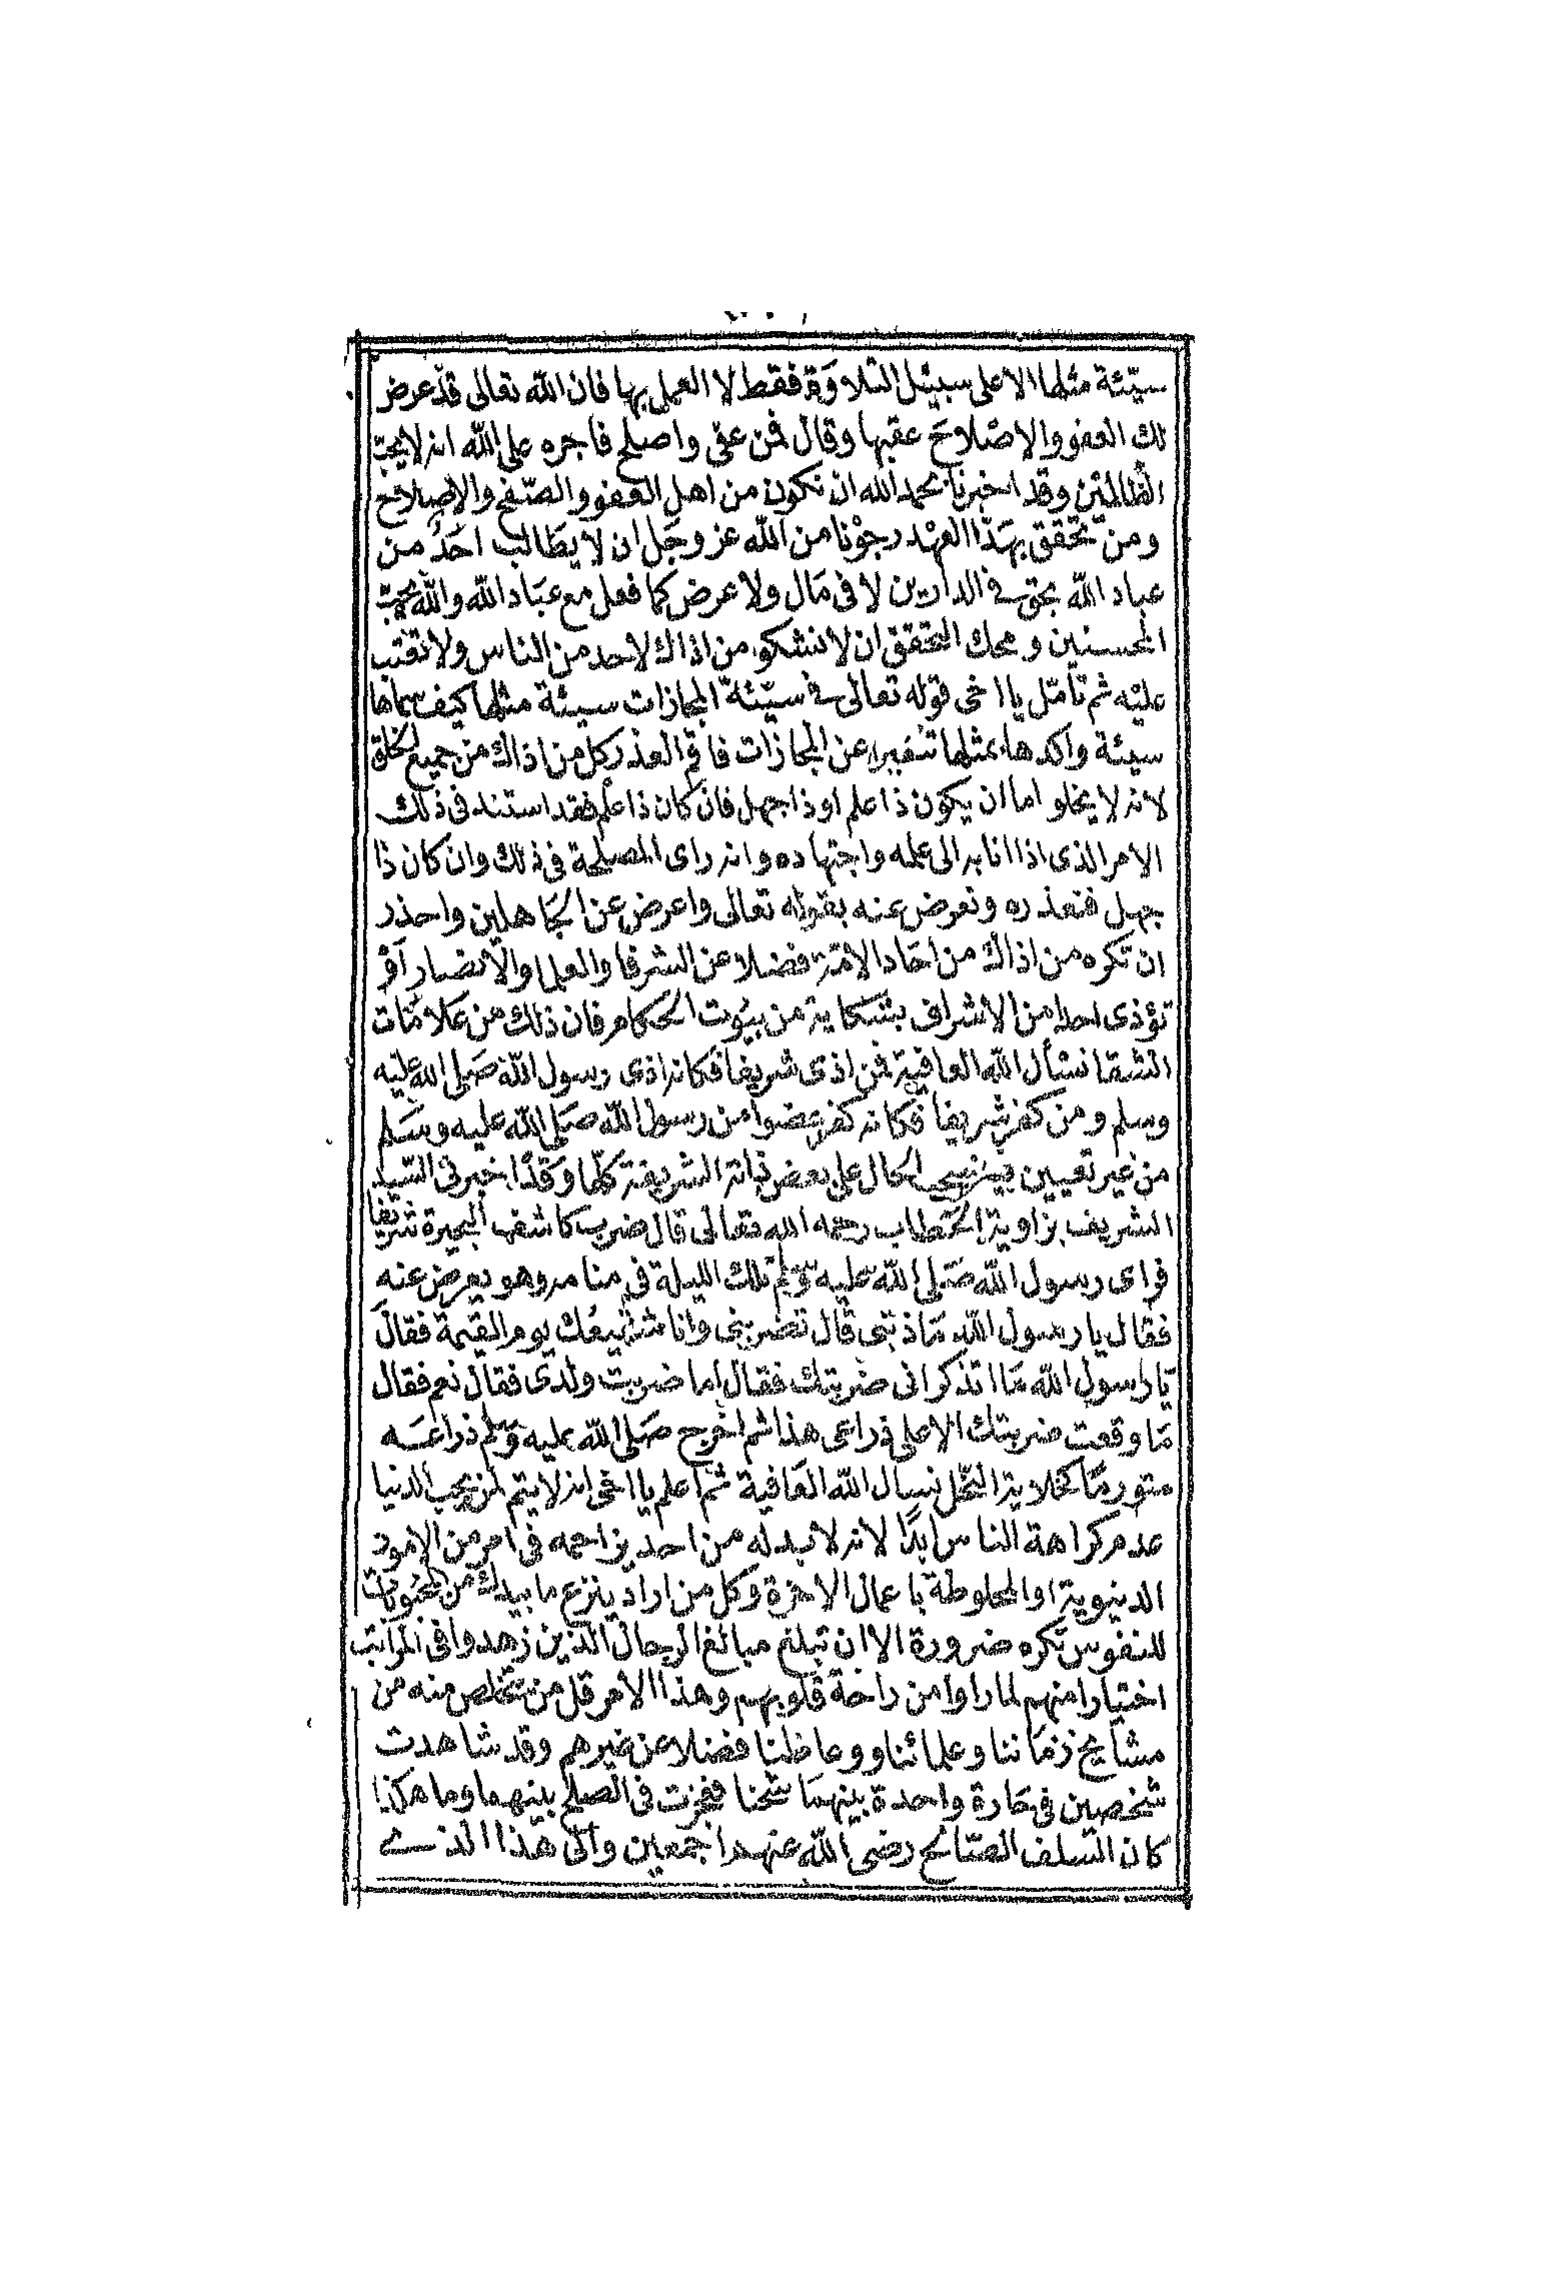 سيّئة مثلها الا على سبيل التلاوة فقط لا العمل بها فان الله تعالى قد عرض
لك العفو والاصلاح عقبها وقال فمن عفى واصلح فاجره على الله انه لا يحب
الظالمين وقد اخبرنا بحمد الله ان نكون من اهل العفو والصفح والاصلاح
ومن تحقق بهذا العهد رجونا من الله عز وجل ان لا يطالب احد من
عباد الله بحق في الدارين لا في مال ولا عرض كما فعل مع عباد الله والله يحب
المحسنين ومحك التحقق ان لا نشكو من اذاك لاحد من الناس ولا تغتب
عليه ثم تامّل يا اخى قوله تعالى في سيّئة المجازات سيئة مثلها كيف سماها
سيئة واكدها بمثلها تنفيرا عن المجازات فاقم العذر كل من اذاك من جميع الخلق
لانه لا يخلو اما ان يكون ذا علم او ذا جهل فان كان ذا علم فقد استند في ذلك
الامر الذى اذانا به الى علمه واجتهاده وانه راى المصلحة في ذلك وان كان ذا
جهل فنعذره ونعرض عنه بقوله تعالى واعرض عن الجاهلين واحذر
ان تكره من اذاك من احاد الامة فضلا عن الشرفا والعلما والانصار او
تؤذى احدا من الاشراف بشكاية من بيوت الحكام فان ذلك من علامات
الشقا نسأل الله العافية فمن اذى شريفا فكانه اذى رسول الله صلى الله عليه
وسلم ومن كفر شريفا فكانه كفر عضوا من رسول الله صلى الله عليه وسلم
من غير تعيين الحال على بعض ذاته الشريفة كلها وقد اخبرنى السيد
الشريف بزاوية الخطاب رحمه الله تعالى قال ضرب كاشف البحيرة شريفا
فراى رسول الله صلى الله عليه وسلم تلك الليلة في منامه وهو يعرض عنه
فقال يا رسول الله ما ذنبى قال تضربنى وانا شفيعك يوم القيمة فقال
يا رسول الله ما اتذكر انى ضربتك فقال اما ضربت ولدى فقال نعم فقال
ما وقعت ضربتك الا على ذراعى هذا ثم اخرج صلى الله عليه وسلم ذراعه
متورما كخلاية النحل نسال الله العافية ثم اعلم يا اخى انه لا يتم لمن يحب الدنيا
عدم كراهة الناس ابدًا لانه لا بد له من احد يزاحمه في امر من الامور
الدنيوية او المخلوطة باعمال الاخرة وكل من اراد ينزع ما بيدك من المحبوبات
للنفوس تكره ضرورة الا ان تبلغ مبالغ الرجال الذين زهدوا في المراتب
اختيارا منهم لما راوا من راحة قلوبهم وهذا الامر قل من يتخلص منه من
مشايخ زماننا وعلمائنا ووعاظنا فضلا عن غيرهم وقد شاهدت
شخصين في حارة واحدة بينهما شحنا فعجزت في الصلح بينهما وما هكذا
كان السلف الصالح رضى الله عنهم اجمعين والى هذا الذي